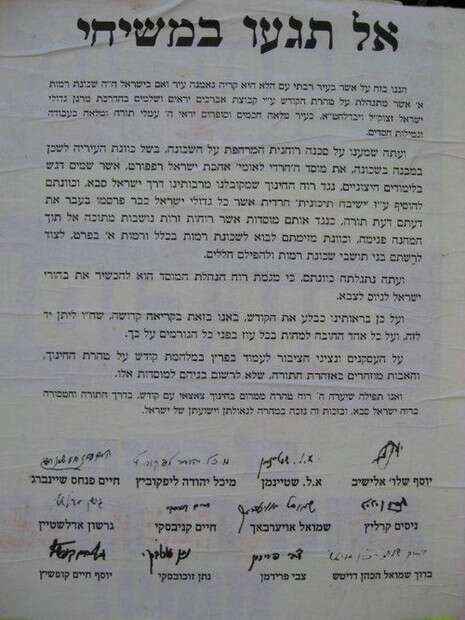 אל תגעו במשיחי
הננו בזה על אשר בעיר רבתי עם הלא היא קריה נאמנה עיר ואם בישראל ה"ה שכונת רמות
א' אשר מתנהלת על טהרת הקודש ע"י קבוצת אברכים יראים ושלמים בהדרכת מרנן גדולי
ישראל זצוק"ל ויבדלחט"א, בעיר מלאה חכמים וסופרים יראי ה' עמלי תורה ומלאה בעבודה
וגמילות חסדים.
ועתה שמענו על סכנה רוחנית המרחפת על השכונה, בשל כוונת העיריה לשכן
במבנה בשכונה, את מוסד ה"חרדי לאומי" אהבת ישראל רפפורט, אשר שמים דגש
בלימודים חיצוניים, נגד רוח החינוך שמקובלנו מרבותינו דרך ישראל סבא, וכוונתם
להוסיף ע"ז "ישיבה תיכונית" חרדית אשר כל גדולי ישראל כבר פרסמו בעבר את
דעתם דעת תורה, כנגד אותם מוסדות אשר רוחות זרות נושבות מתוכה אל תוך
המחנה פנימה, וכוונת מזימתם לבוא לשכונת רמות בכלל ורמות א' בפרט, לצוד
לרשתם בני תושבי שכונת רמות ולהפילם חללים.
ועתה נתגלתה כוונתם, כי מגמת רוח הנהלת המוסד הוא להכשיר את בחורי
ישראל לגיוס לצבא.
ועל כן בראותינו כבלע את הקודש, באנו בזאת בקריאה קדושה, שח"ו ליתן יד
לזה, ועל כל אחד החובה למחות בכל עוז בפני כל הגורמים על כך.
על העסקנים ונציגי הציבור לעמוד בפרץ במלחמת קודש על טהרת החינוך,
והאבות מוזהרים באזהרת התורה, שלא לרשום בניהם למוסדות אלו.
ואנו תפילה שיערה ה' רוח טהרה ממרום בחינוך צאצאי עם קודש, בדרך התורה והמסורה
ברוח ישראל סבא, ובזכות זה נזכה במהרה לגאולתן וישועתן של ישראל.
יוסף שלו' אלישיב א.ל. שטיינמן מיכל יהודה ליפקוביץ חיים פנחס שיינברג
ניסים קרליץ שמואל אויערבאך חיים קניבסקי גרשון אדלשטיין
ברוך שמואל הכהן דויטש צבי פרידמן נתן זוכובסקי יוסף חיים קופשיץ